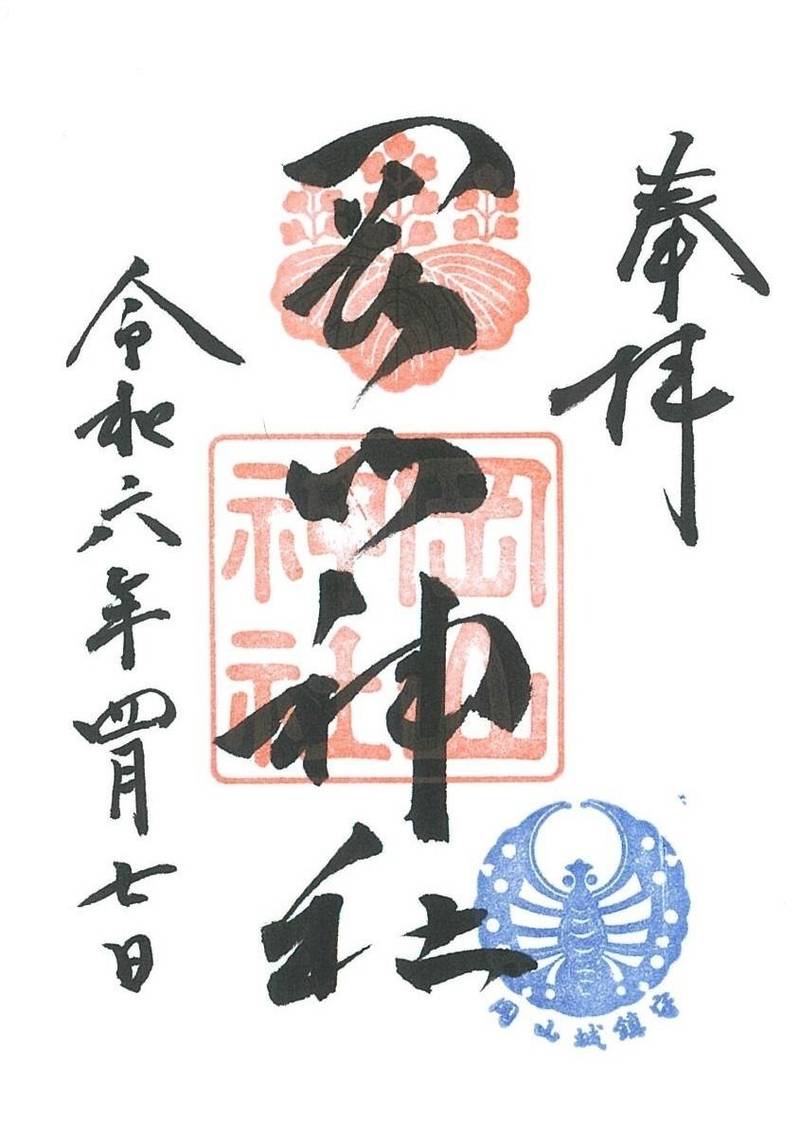 奉拝
岡山神社
岡山神社
令和六年四月七日
岡山城鎮守